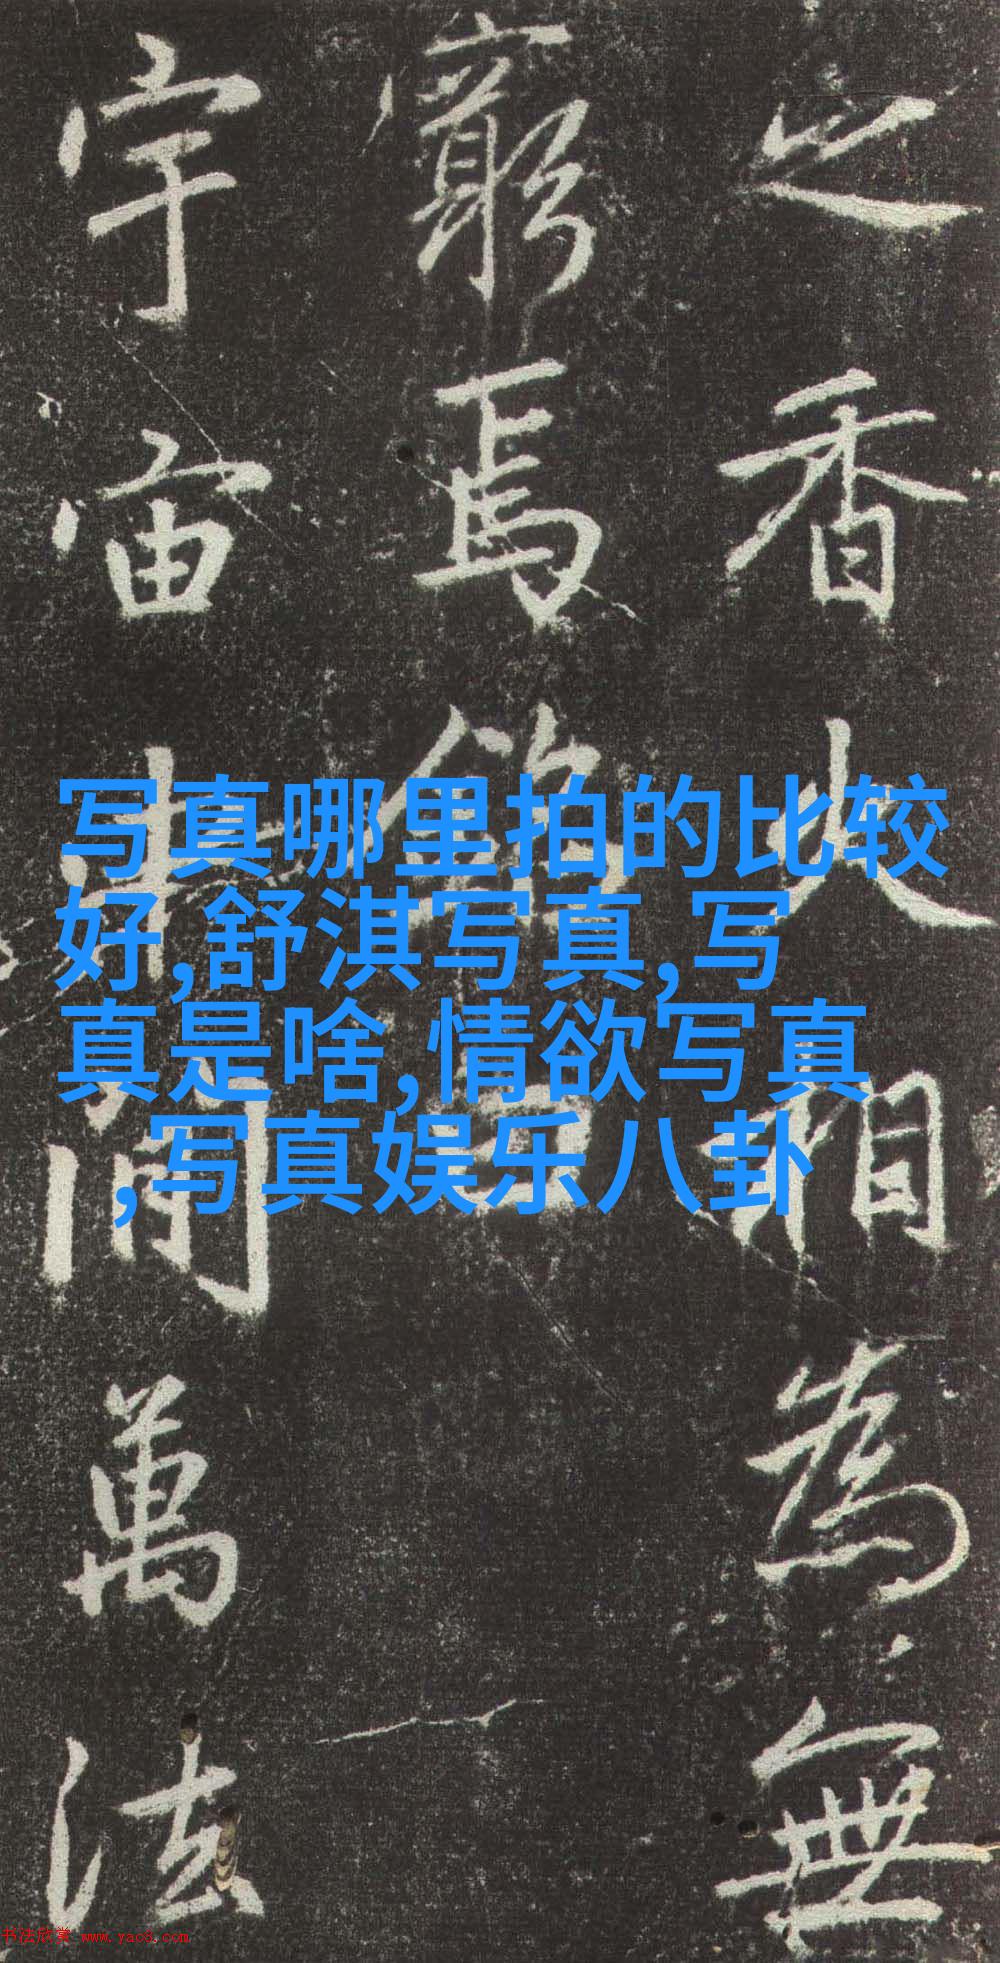 之香火相為無
窮焉銘曰
宇宙間萬法
写真哪里拍的比较
好,舒淇写真,写
真是啥,情欲写真
,写真娱乐八卦
书法欣赏 www.yac8.com